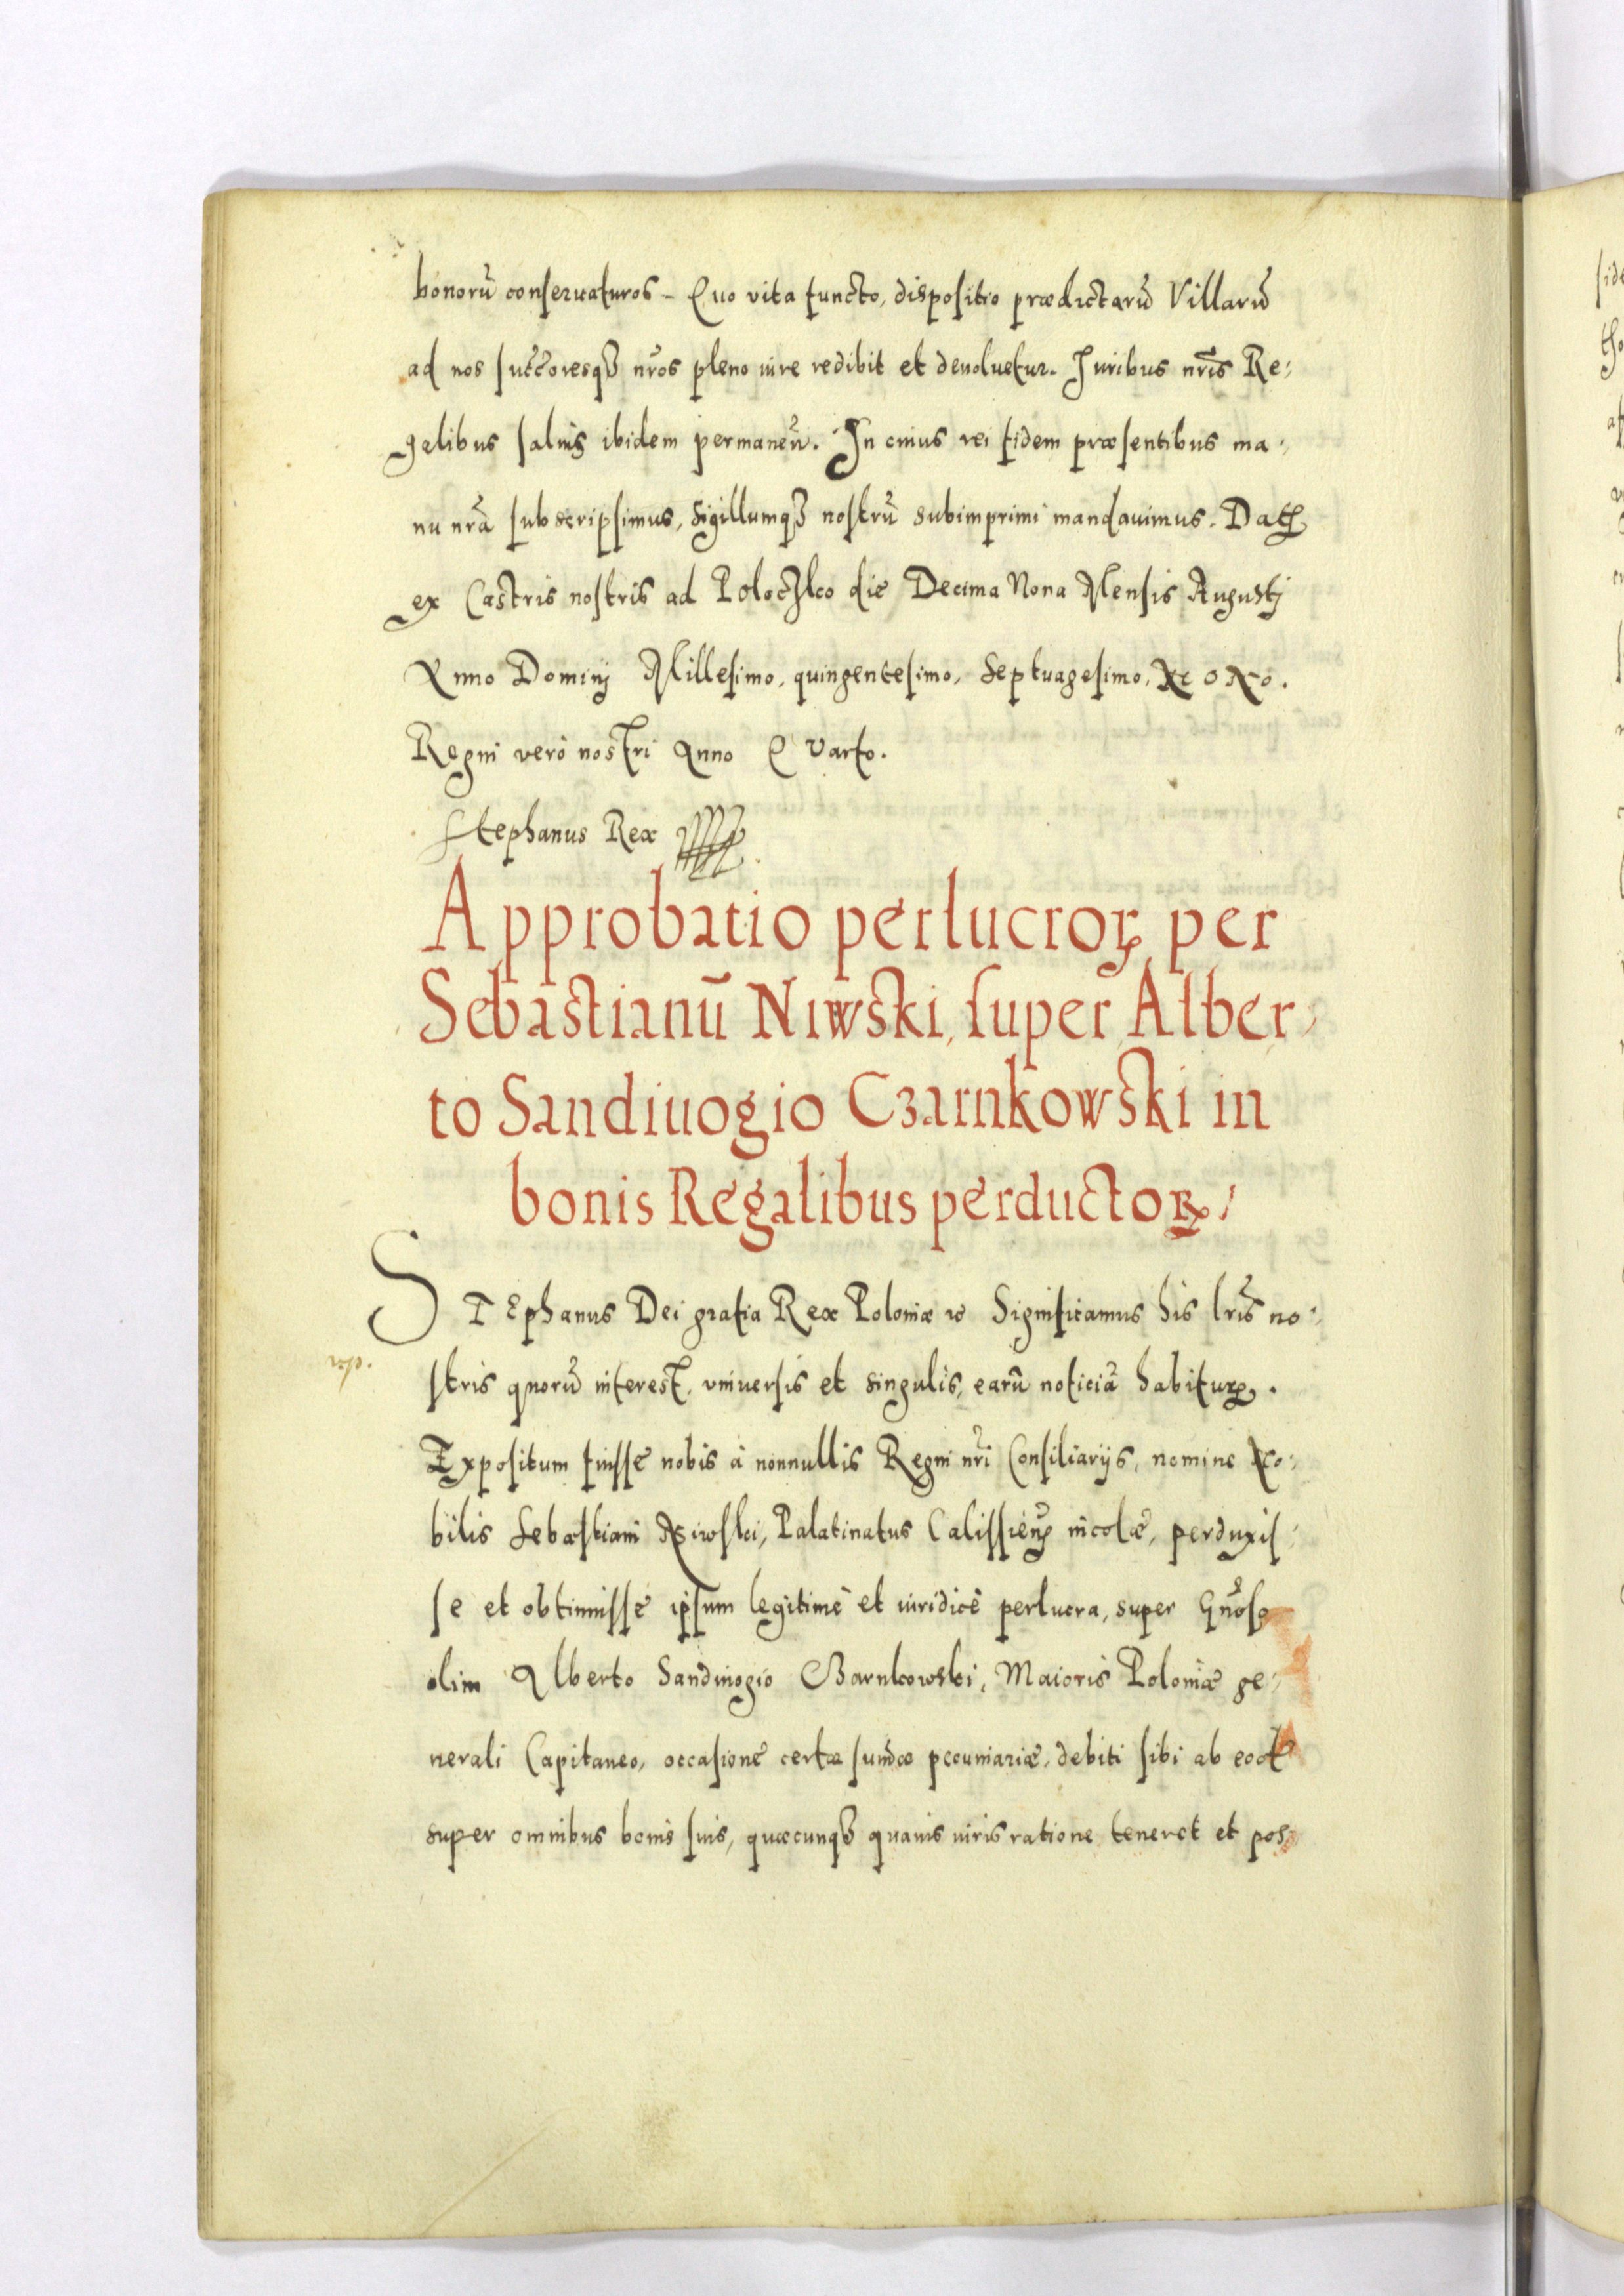 bonorũ conseruaturos - Quo vita functo, dispositio prædictarũ Villarũ
ad nos succ̃oresqꝫ nr̃os pleno iure redibit et deuoluetur. Iuribus nr̃is Re-
gelibus saluis ibidem permaneñ. In cuius rei fidem præsentibus ma-
nu nr̃a subscripsimus, Sigillumqꝫ nostrũ subimprimi mandauimus. Datꝭ
ex Castris nostris ad Poloczko die Decima Nona Mensis Augustj
Anno Dominj Millesimo, quingentesimo, Septuagesimo, Nono.
Regni verò nostri Anno Quarto.
Stephanus Rex
Approbatio perlucroꝝ per
Sebastianũ Niwski, super Alber-
to Sandiuogio Czarnkowski in
bonis Regalibus perductoꝝ
STEphanus Dei gratia Rex Poloniæ ꝛc Significamus his lr̃is no-
stris quorũ interest, vniuersis et singulis, earũ noticiã habituꝝ.
Expositum fuisse nobis à nonnullis Regni nr̃i Consiliarijs, nomine No-
bilis Sebastiani Niwski, Palatinatus Calissieñ incolæ, perduxis-
se et obtinuisse ipsum legitimè et iuridicè perlucra, super Gñoso
olim Alberto Sandiuogio Czarnkowski, Maioris Poloniæ ge-
nerali Capitaneo, occasione certæ sum̃æ pecuniariæ, debiti sibi ab eod
super omnibus bonis suis, quæcunqꝫ quauis iuris ratione teneret et pos-